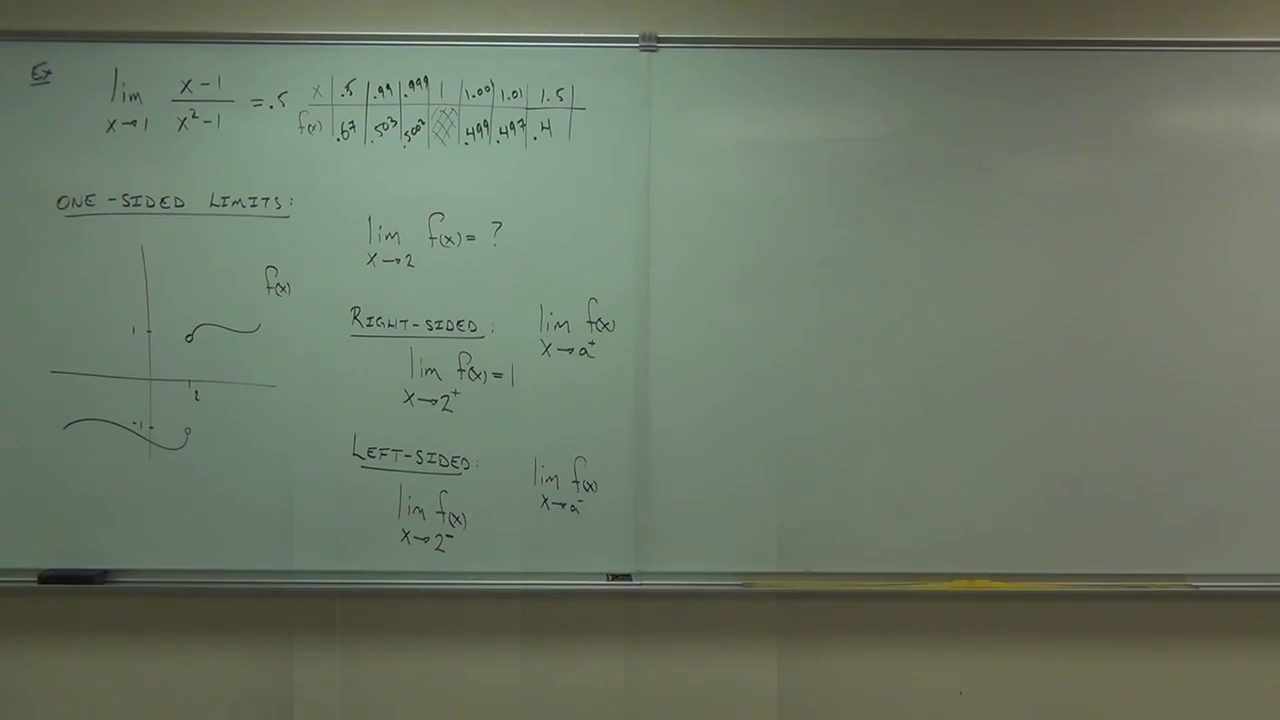 Ex lim x→1 x-1 / x²-1 = .5
x | .5 | .99 | .999 | 1 | 1.001 | 1.01 | 1.5 |
f(x) | .67 | .503 | .5002 | | .499 | .497 | .4 |
ONE-SIDED LIMITS:
f(x)
1
2
-1
lim x→2 f(x) = ?
RIGHT-SIDED: lim x→a⁺ f(x)
lim x→2⁺ f(x) = 1
LEFT-SIDED: lim x→a⁻ f(x)
lim x→2⁻ f(x)